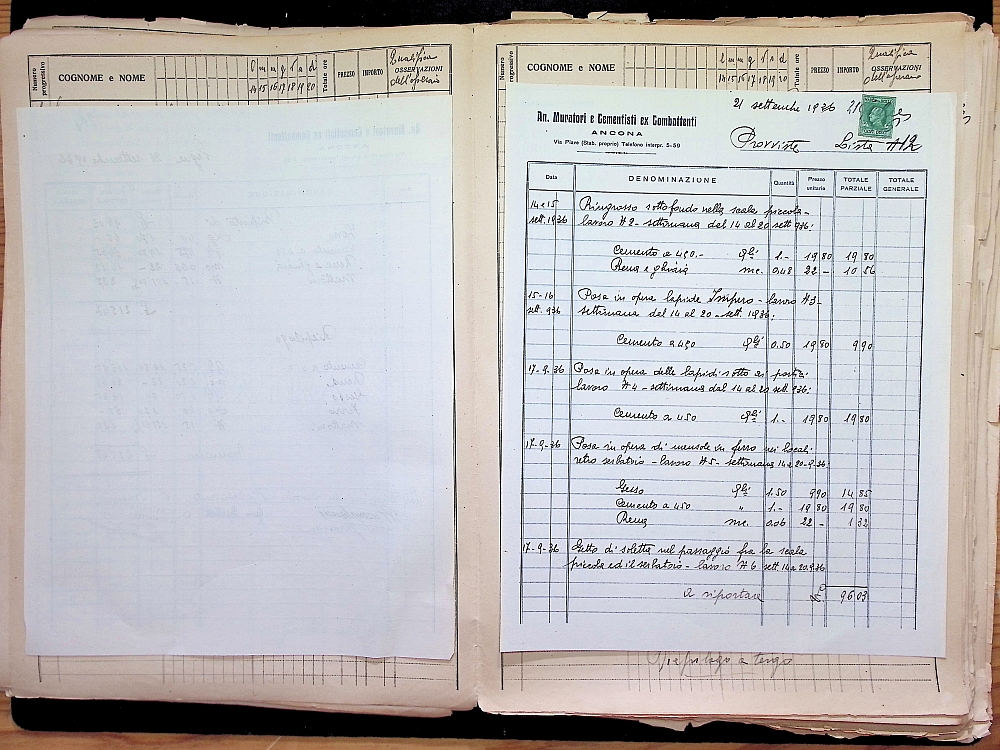 Numero progressivo
COGNOME e NOME
D m m g v s d
14 15 16 17 18 19 20
Totale ore
PREZZO
IMPORTO
Qualifica
OSSERVAZIONI
dell'operaio
Numero progressivo
COGNOME e NOME
14 15 16 17 18 19 20
Totale ore
PREZZO
IMPORTO
Qualifica
OSSERVAZIONI
dell'operaio
21 settembre 1936
An. Muratori e Cementisti ex Combattenti
ANCONA
Via Piave (Stab. proprio) Telefono interpr. 5-59
Provviste Lista N 12
Data
DENOMINAZIONE
Quantità
Prezzo unitario
TOTALE PARZIALE
TOTALE GENERALE
14 e 15 Ringrosso sottofondo nella scala piccola -
sett. 1936 lavoro N 2 - settimana dal 14 al 20 sett. 936:
Cemento a 450.- Qli 1.- 19 80 19 80
Rena e ghiaia mc. 0,48 22 - 10 56
15-16 Posa in opera lapide Impero - lavoro N 3 -
sett. 936 settimana del 14 al 20 - sett. 1936:
Cemento a 450 Qli 0.50 19 80 9 90
17-9-36 Posa in opera delle lapidi sotto ai portici
lavoro N 4 - settimana dal 14 al 20 sett. 936:
Cemento a 450 Qli 1.- 19 80 19 80
17-9-36 Posa in opera di mensole in ferro nei locali
retro serbatoio - lavoro N 5 - settimana 14 a 20-9-36:
Gesso Qli 1.50 9 90 14 85
Cemento a 450 " 1.- 19 80 19 80
Rena mc. 0,06 22 - 1 32
17-9-36 Getto di soletta nel passaggio fra la scala
piccola ed il serbatoio - lavoro N 6 sett. 14 a 20.9.36
a riportare 96 03
Riepilogo a tergo